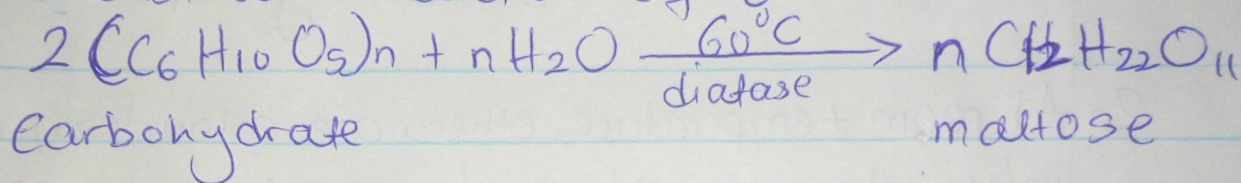 2(C6H10O5)n + nH2O 60°C diatase → nC12H22O11
Carbohydrate maltose